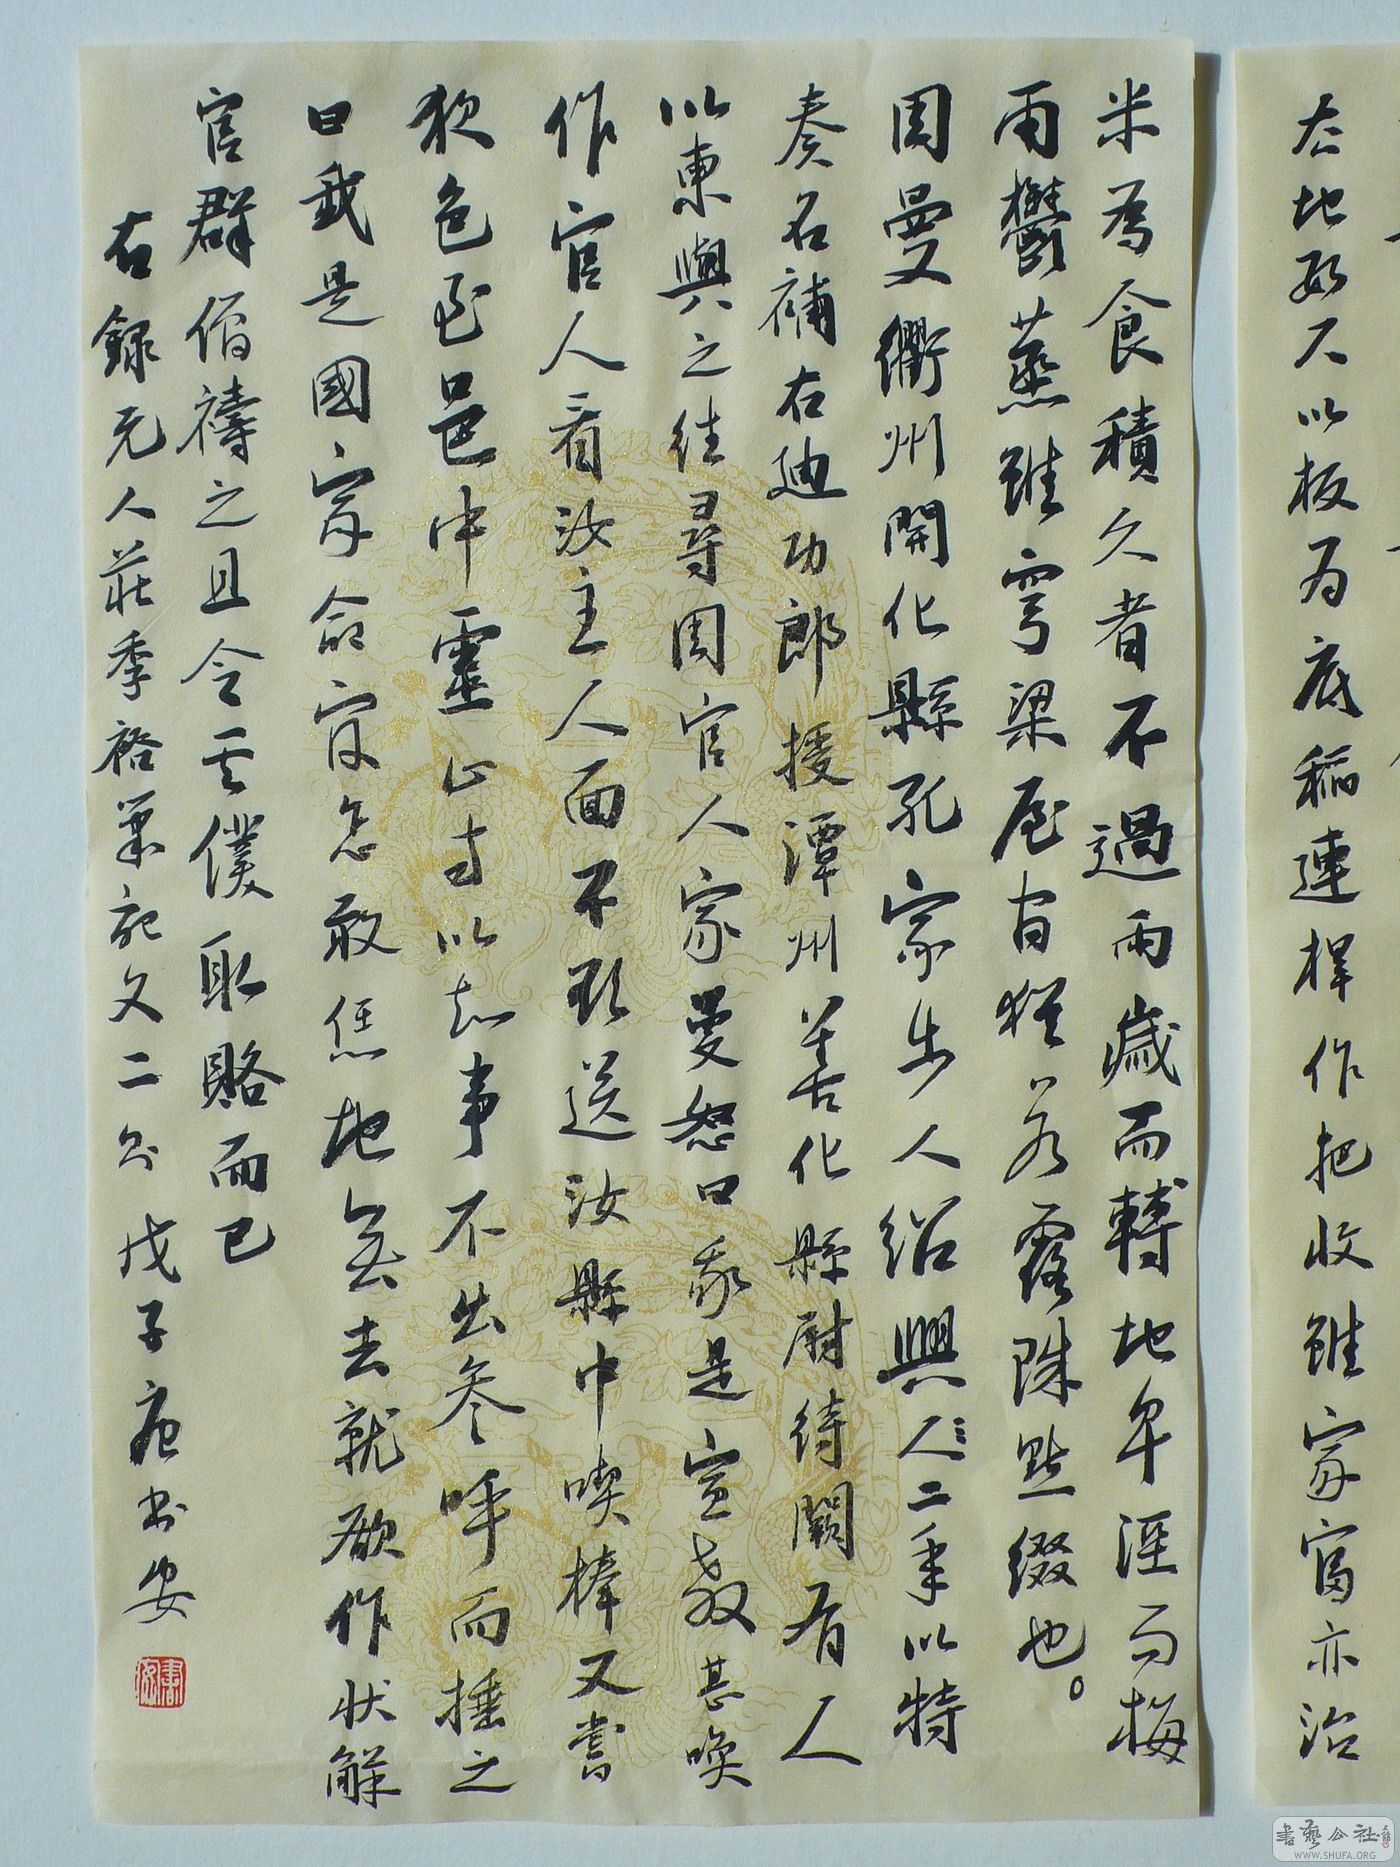 左地㪚不以板为底稲連桿作把收雖家富亦治
米為食積久者不過兩歲而轉地卑溼而梅
雨鬱蒸雖穹梁屋宙猶若露珠點綴也。
周曼衢州開化縣孔家步人紹興二年以特
奏名補右迪功郎授潭州善化縣尉待闕有人
以柬與之往尋周官人家曼怒曰我是宣教甚喚
作官人看汝主人面不欲送汝縣中喫棒又嘗
夜邑至邑中靈山寺以知事不出參呼而捶之
曰我是國家命官怎敢恁地無去就欲作狀解
官群僧禱之且令云僕取賂而已
右錄元人莊季裕筆記文二則 戊子 書安
書藝公社
WWW.SHUFA.ORG